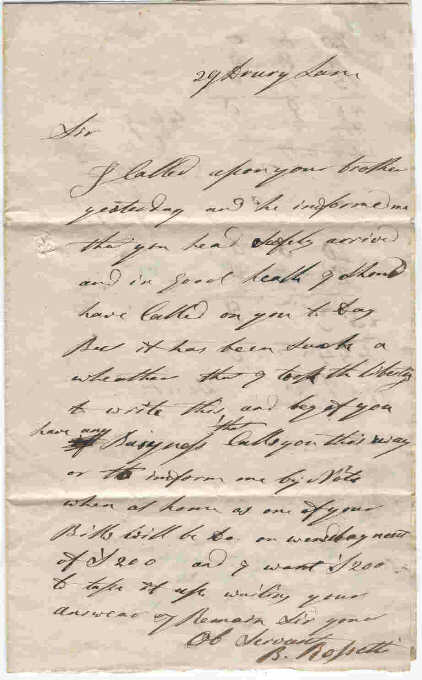 29 Drury Lane
Sir
I Called upon your brother
yesterday and he informed me
that you head safely arrived
and in good health I Should
have Called on you to Day
But it has been such a
wheather that I took the liberty
to write this, and beg if you
have any Busyness that Calls you this way
or to inform me by Note
when at home as one of your
Bills will be Due on next
of £200 and I want £200
to take it up waiting your
answear I Remain Sir your
Ob Servant
B. Rossetti